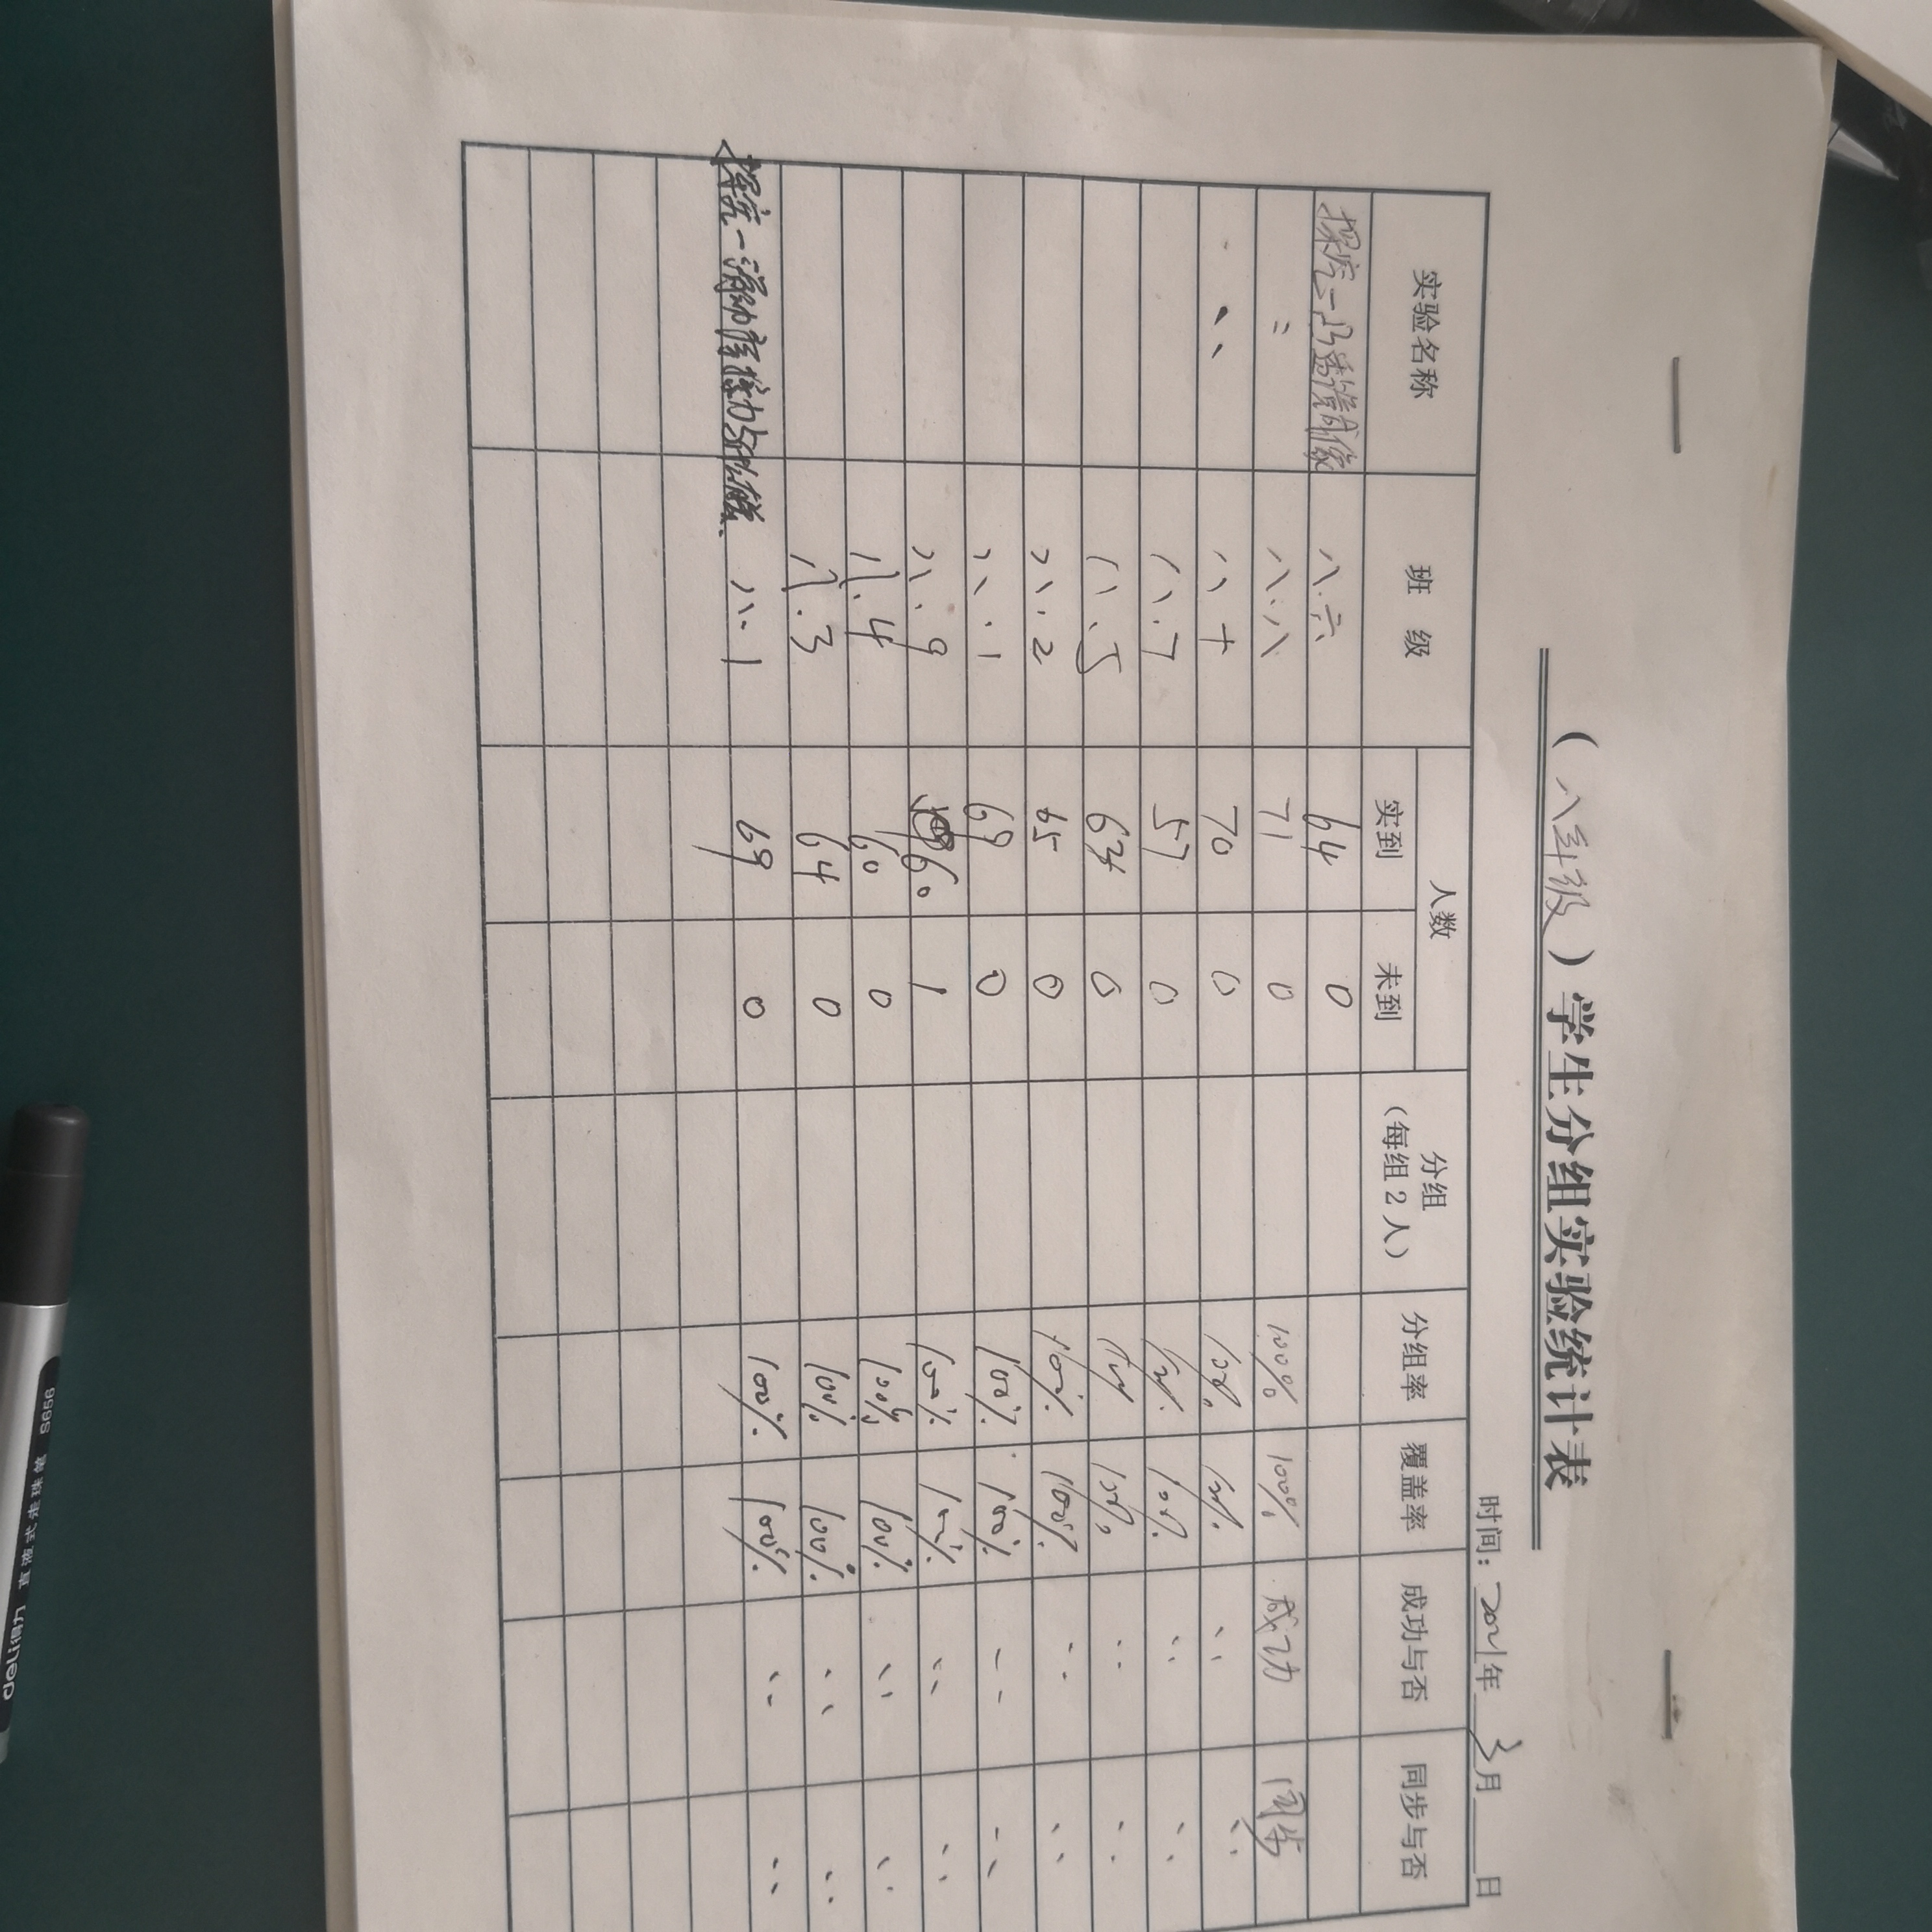 （八年级）学生分组实验统计表
时间：2021年 3月 日
实验名称 班 级 人数 分组（每组2人） 分组率 覆盖率 成功与否 同步与否
实到 未到
探究一凸透镜成像 八.六 64 0
〃 八.八 71 0 100% 100% 成功 同步
〃 八十 70 0 100% 100% 〃 〃
八.7 57 0 100% 100% 〃 〃
八.5 63 0 100% 100% 〃 〃
八.2 65 0 100% 100% 〃 〃
八.1 69 0 100% 100% 〃 〃
八.9 60 1 100% 100% 〃 〃
八.4 60 0 100% 100% 〃 〃
八.3 64 0 100% 100% 〃 〃
探究一滑动摩擦力与 八.1 69 0 100% 100% 〃 〃
deli得力 直液式走珠笔 S656